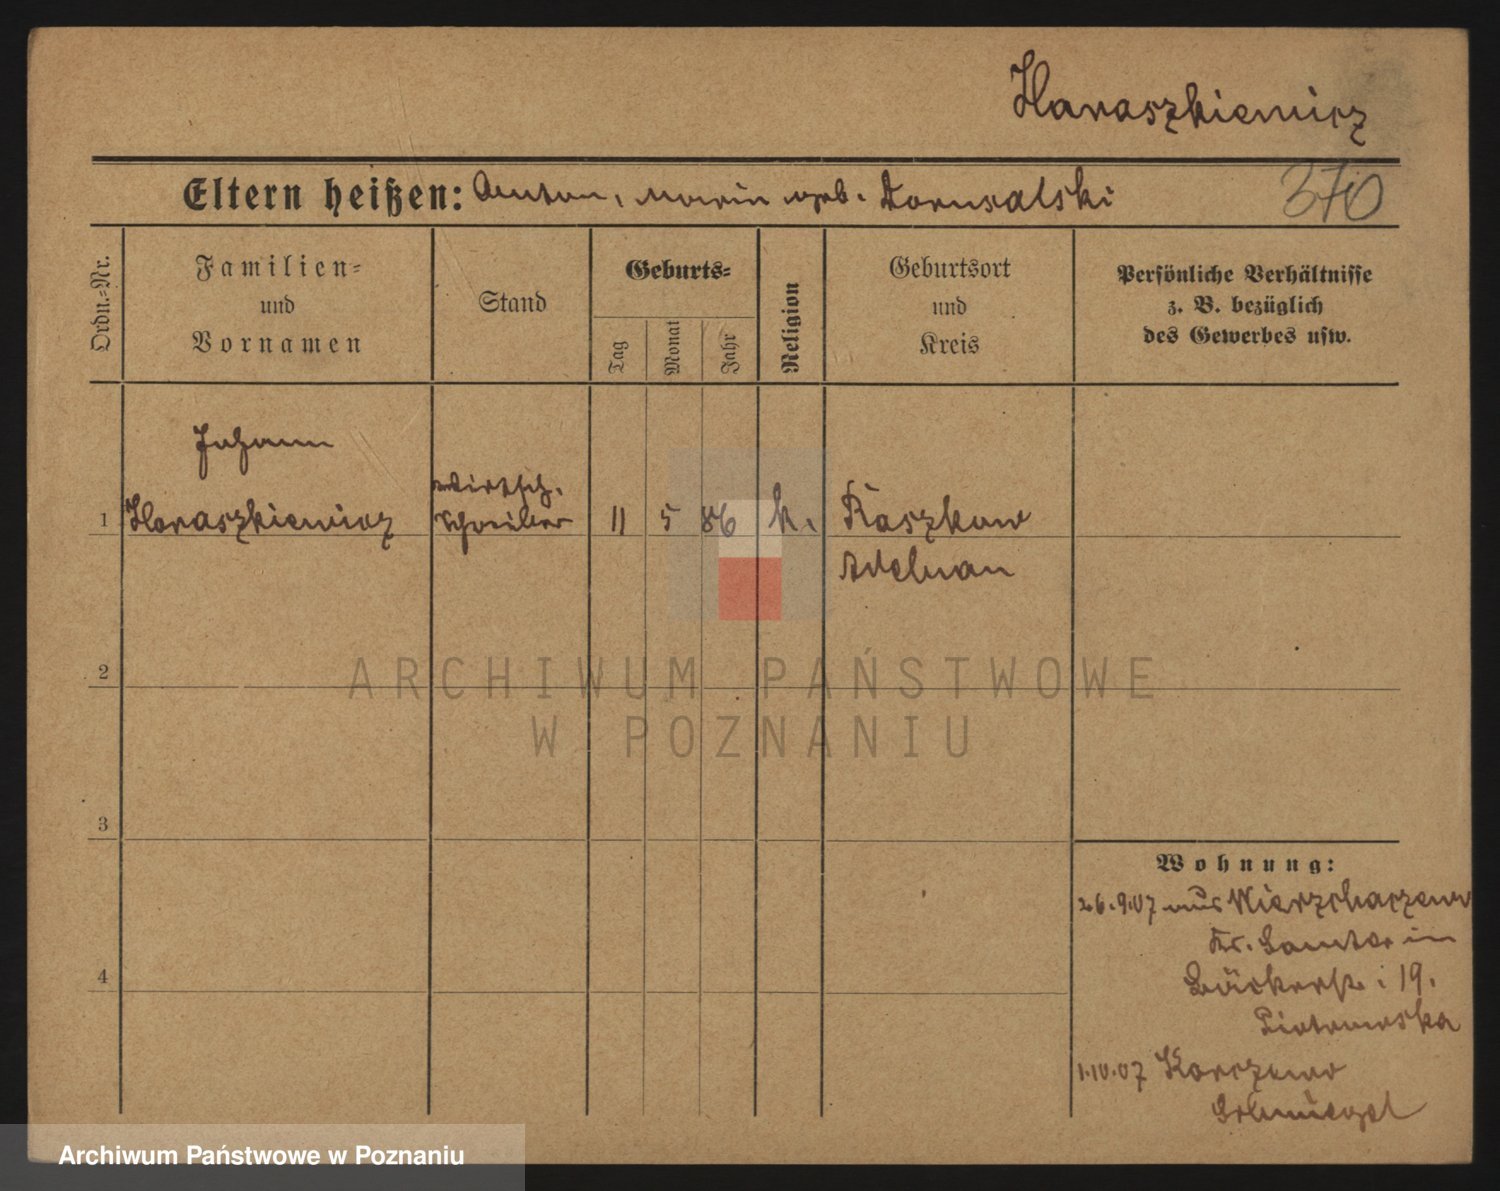 Haraszkiewicz
Eltern heißen: Anton, Marie geb. Dornwalski
370
Ordn.-Nr.
Familien-
und
Vornamen
Stand
Geburts-
Tag
Monat
Jahr
Religion
Geburtsort
und
Kreis
Persönliche Verhältnisse
z. B. bezüglich
des Gewerbes usw.
Johann
1 Haraszkiewicz
Wirtsch.
Schreiber
11 5 86 k.
Raszkow
Adelnau
2
3
4
Wohnung:
26.9.07 aus Wierzchaczewo
Kr. Samter in
Bäckerstr. 19.
Piotrowska
1.10.07 Karczewo
Schmiegel
ARCHIWUM PAŃSTWOWE
W POZNANIU
Archiwum Państwowe w Poznaniu